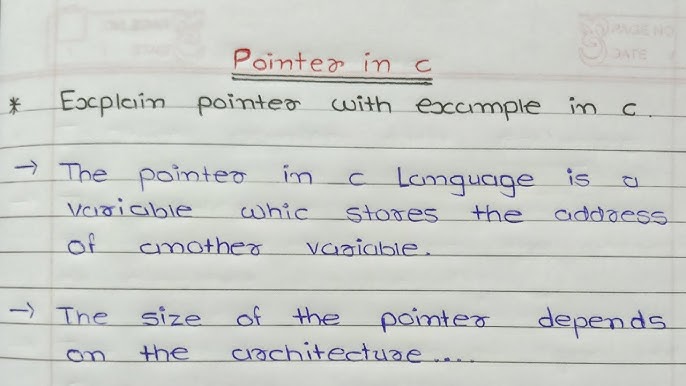 PAGE NO
DATE
Pointer in c
* Explain pointer with example in c.
→ The pointer in c Language is a
variable whic stores the address
of another variable.
→ The size of the pointer depends
on the architecture....